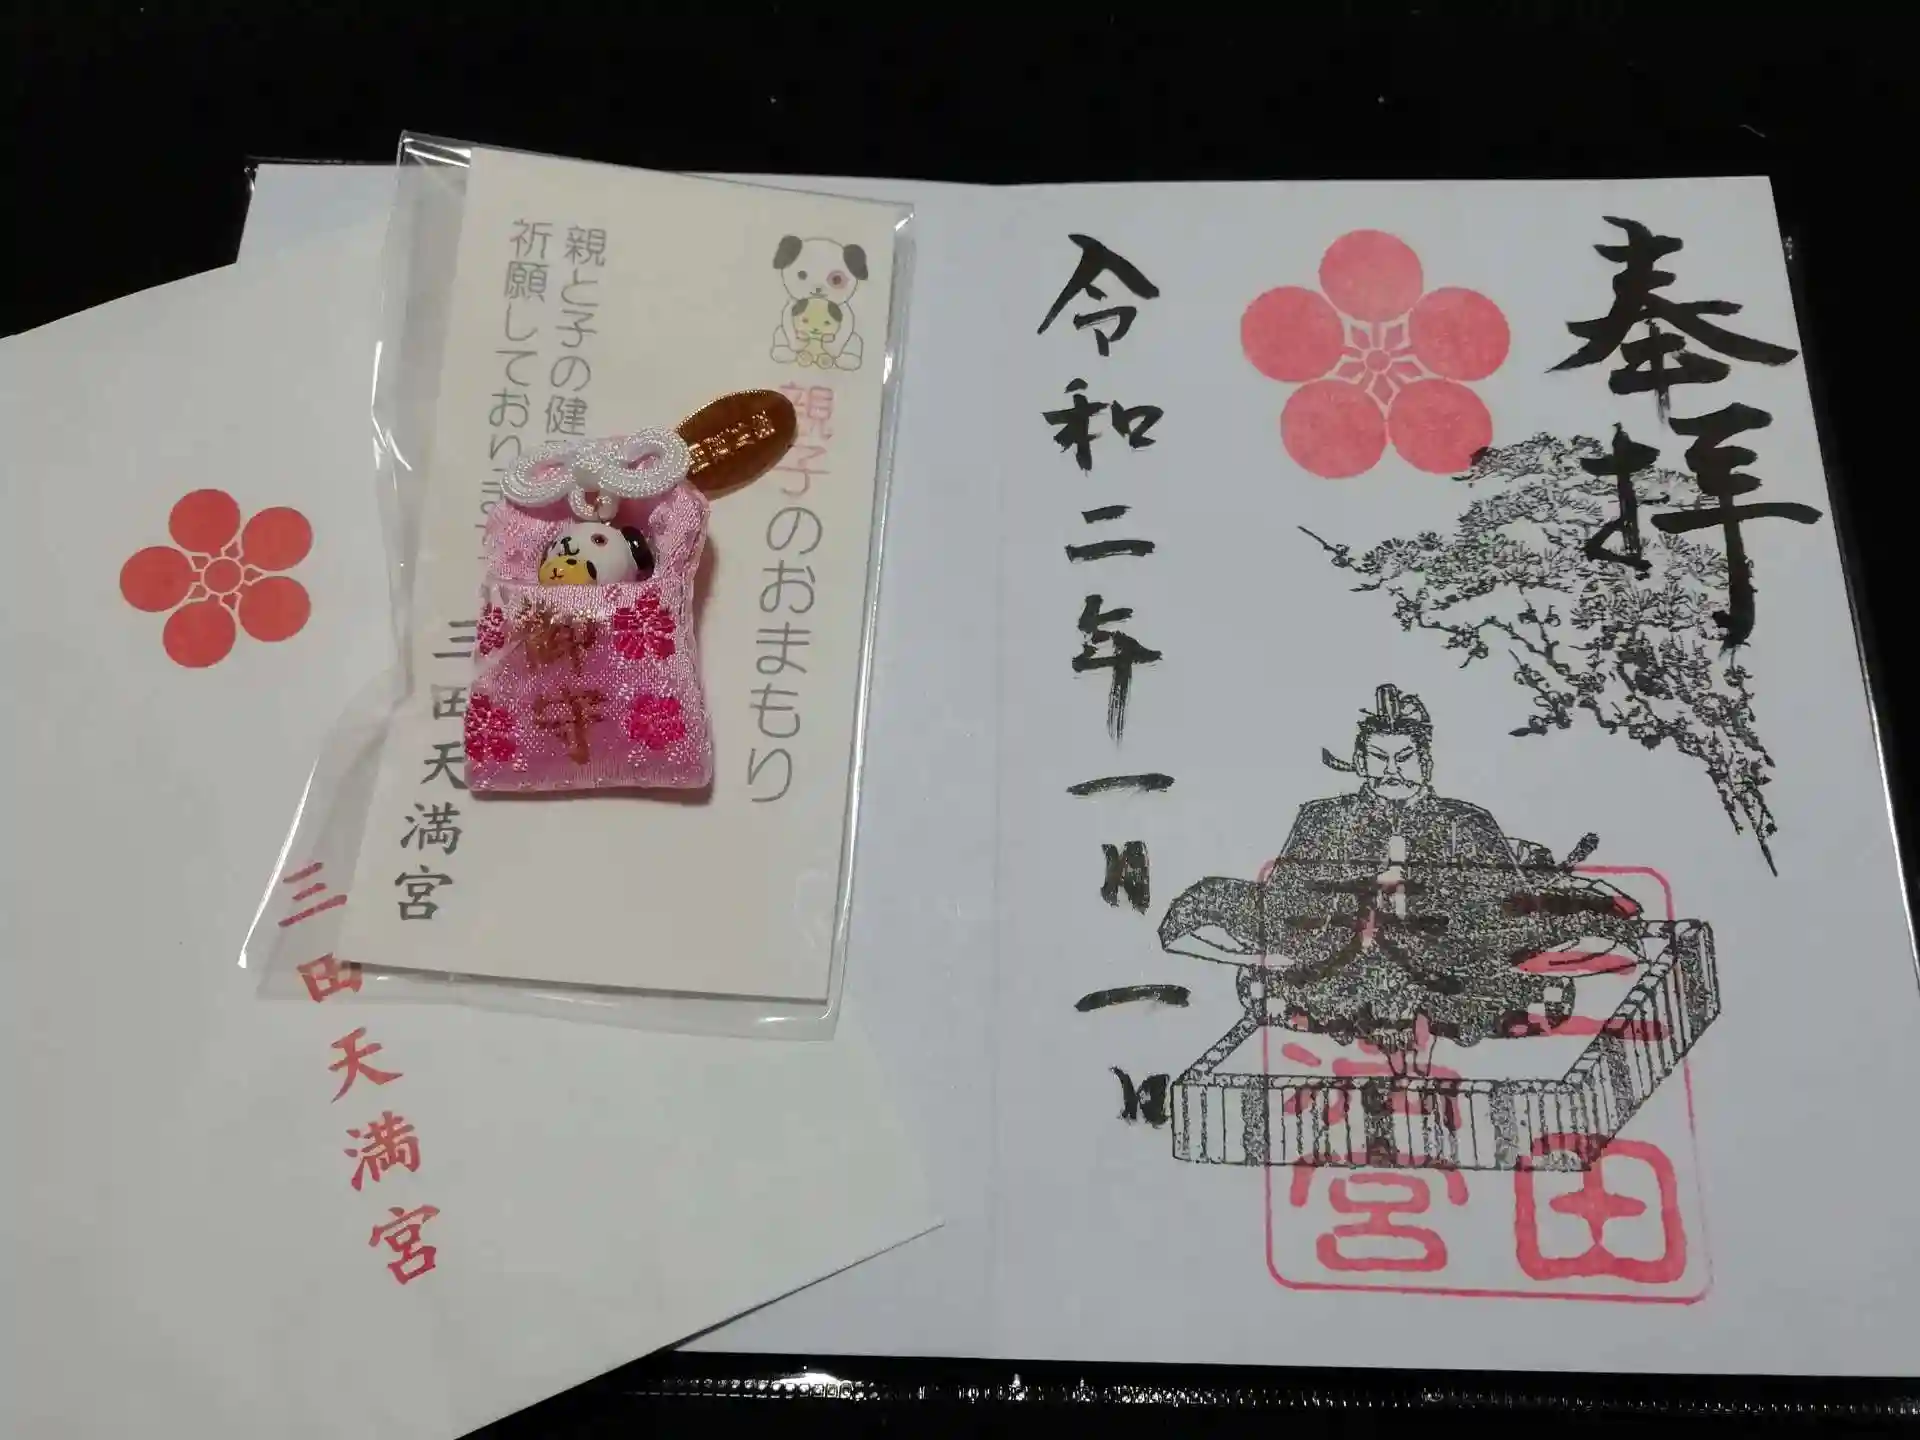 奉拝
令和二年一月一日
三田
天満宮
親子のおまもり
親と子の健
祈願しております
三田天満宮
御守
三田天満宮